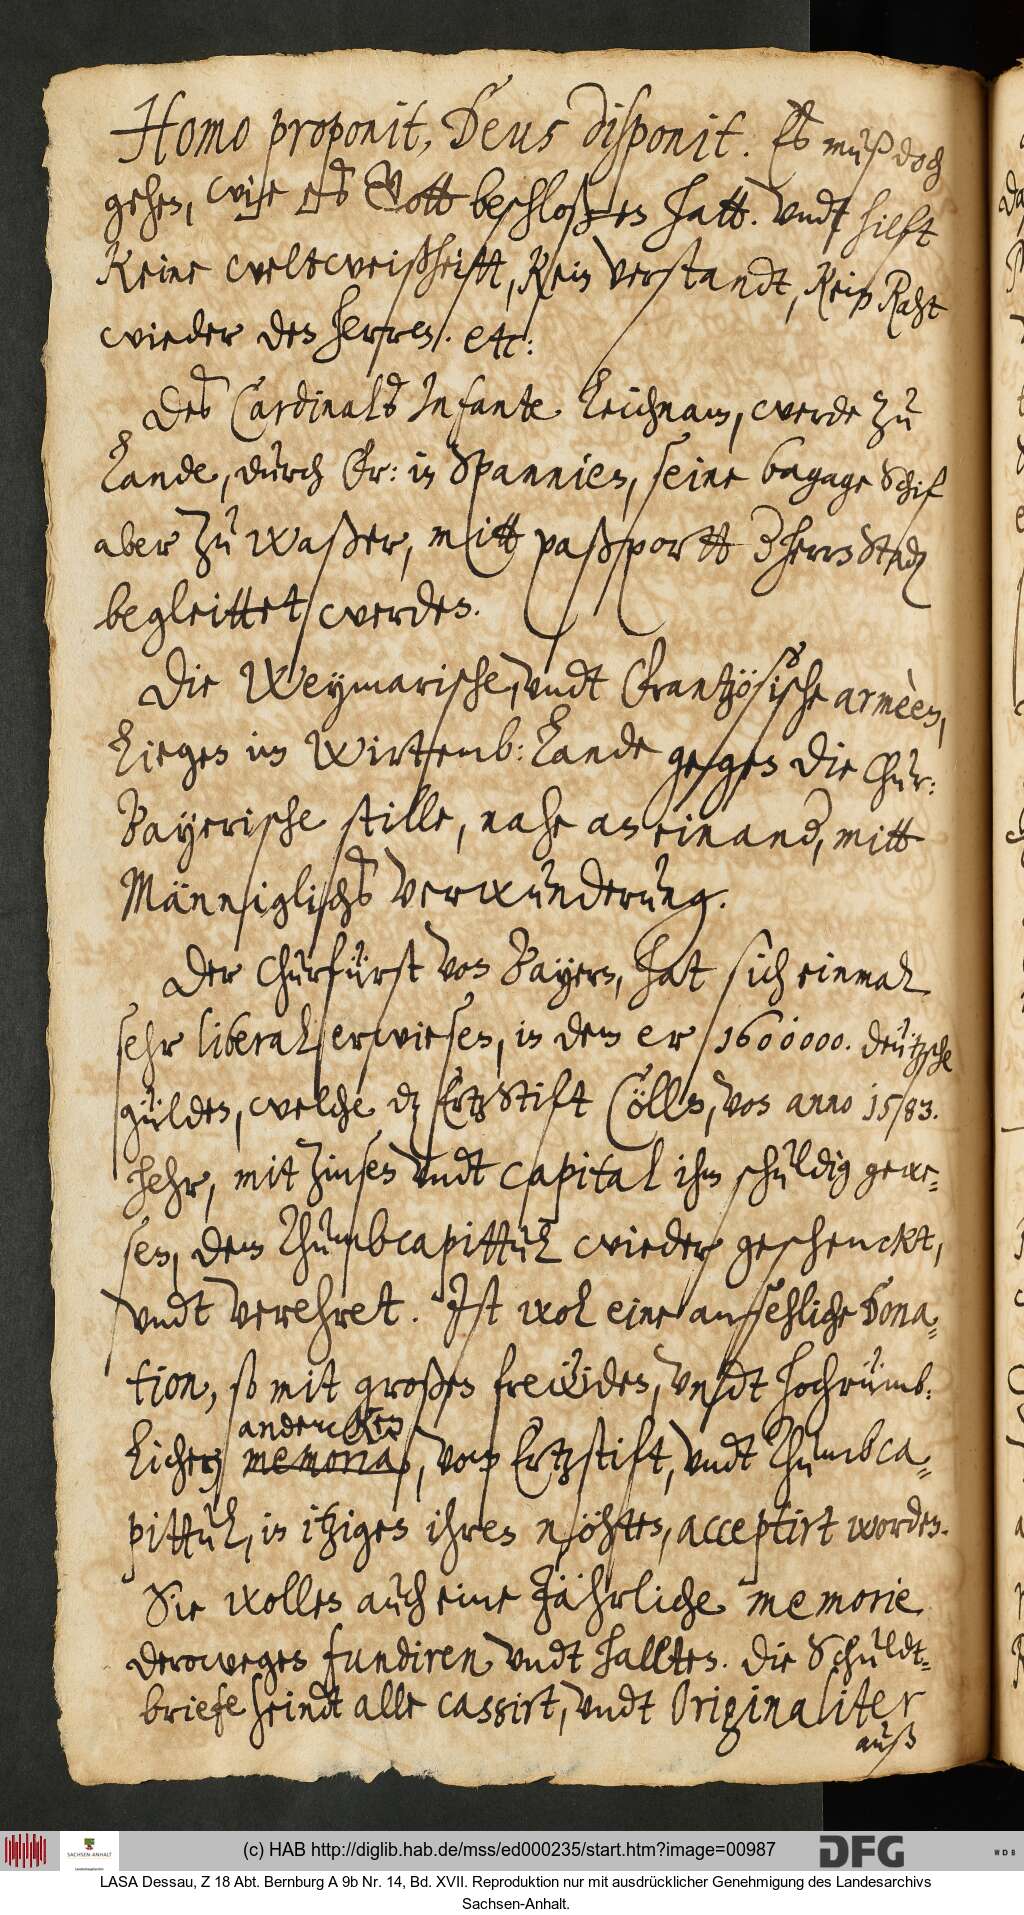 Homo proponit, Deus disponit. Es muß doch
gehen, wie es Gott beschloßen hatt. Undt hilft
keine weltweißheitt, kein verstandt, kein Raht
wieder den Herren. etc:
Des Cardinals Infante Leichnam, werde zu
Lande, durch Fr: in Spannien, seine bagage Schif
aber zu waßer, mitt paßportt d herrn Stad
begleittet werden.
Die Weymarische, undt Frantzösische armèen,
liegen im Wirtemb: Lande gegen die Chur:
Bayerische stille, nahe an einand, mitt
Männiglichs verwunderung.
Der Churfürst von Bayern, hat sich einmal
sehr liberal erwiesen, in dem er 1600000. deützsche
gülden, welche dz ErtzStift Cölln, von anno 1583.
hehr, mit zinsen undt capital ihm schuldig gewe=
sen, dem Thumbcapittul wieder geschenckt,
undt verehret. Ist wol eine ansehliche Dona=
tion, so mit großen freüden, undt hochrümb:
andencken
lichen memoria, vom Ertzstift, undt Thumbca=
pittul, in itzigen ihren nöhten, acceptirt worden.
Sie wollen auch eine Jährliche memorie
derowegen fundiren undt hallten. Die Schuldt=
briefe seindt alle cassirt, undt Originaliter
auß
(c) HAB http://diglib.hab.de/mss/ed000235/start.htm?image=00987
SACHSEN-ANHALT
DFG
WDB
LASA Dessau, Z 18 Abt. Bernburg A 9b Nr. 14, Bd. XVII. Reproduktion nur mit ausdrücklicher Genehmigung des Landesarchivs
Sachsen-Anhalt.